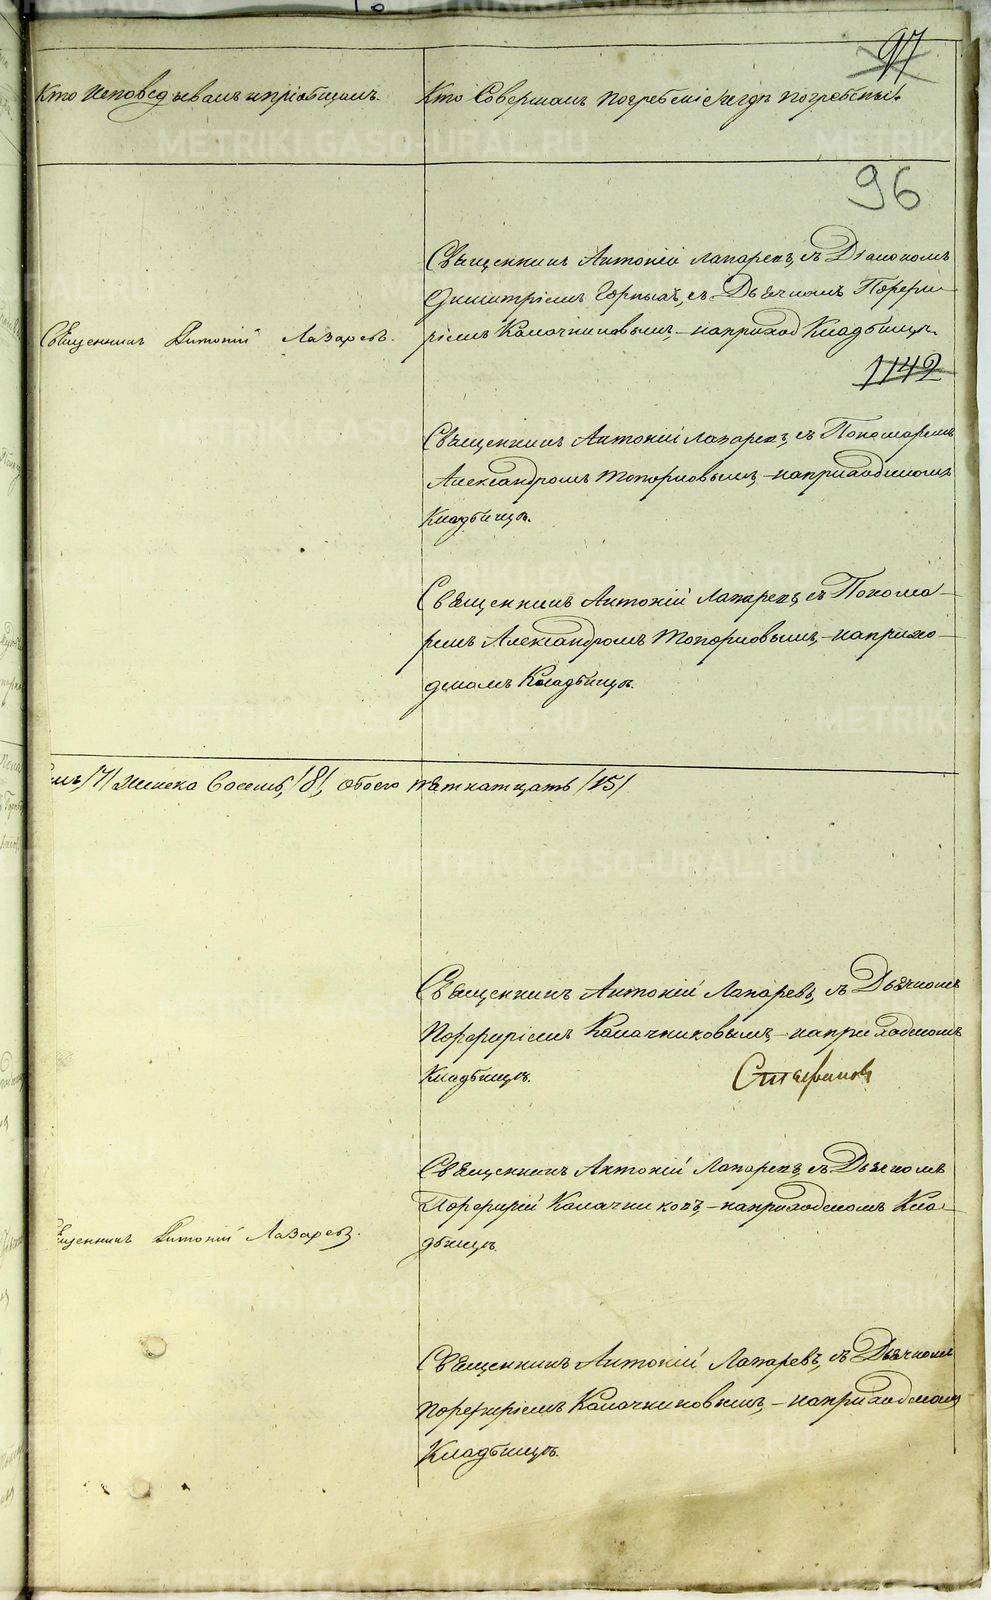 97
Кто Исповедывалъ и пріобщалъ.
Кто Совершалъ погребеніе и где погребены.
96
Священникъ Антоній Лазаревъ, съ Діакономъ
Димитріемъ Горныхъ, съ Дьячкомъ Порфи-
ріемъ Калачниковымъ, - на приход Кладбищъ.
Священникъ Антоній Лазаревъ.
1142
Священникъ Антоній Лазаревъ, съ Пономаремъ
Александромъ Топорковымъ, - на приходскомъ
Кладбищъ.
Священникъ Антоній Лазаревъ, съ Понома-
ремъ Александромъ Топорковымъ, - на прихо-
дскомъ Кладбищъ.
/7/ Женска Восемь, /8/, обоего пятнатцать /15/
Священникъ Антоній Лазаревъ, съ Дьячкомъ
Порфиріемъ Калачниковымъ, - на приходскомъ
Кладбищъ.
Священникъ Антоній Лазаревъ, съ Дьячкомъ
Порфирій Калачниковъ, - на приходскомъ Кла-
дбищъ.
Священникъ Антоній Лазаревъ.
Священникъ Антоній Лазаревъ, съ Дьячкомъ
Порфиріемъ Калачниковымъ, - на приходскомъ
Кладбищъ.
METRIKI.GASO-URAL.RU